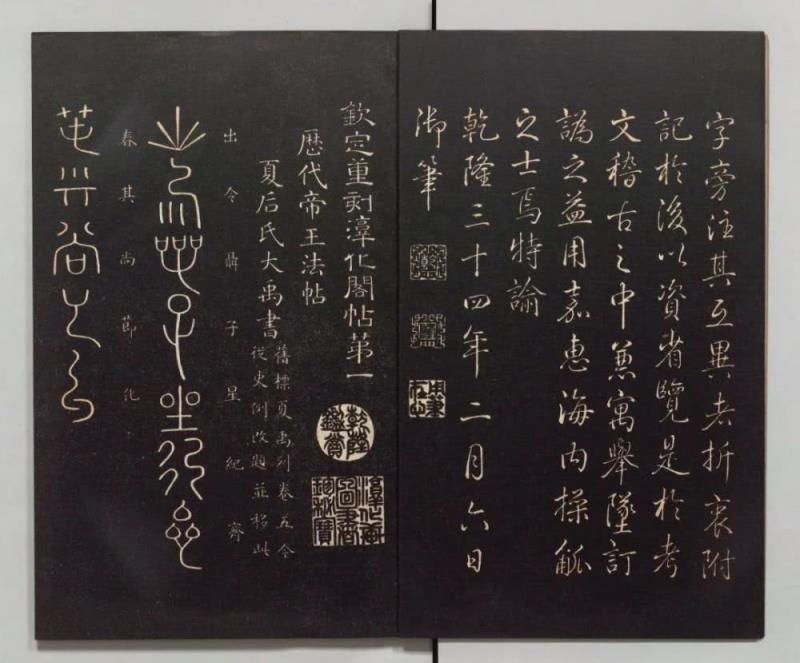 字旁注其互異者折衷附
記於後以資省覽是於考
文稽古之中兼寓舉墜訂
譌之益用嘉惠海內操觚
之士焉特諭
乾隆三十四年二月六日
御筆
欽定重刻淳化閣帖第一
歷代帝王法帖
夏后氏大禹書
舊標夏禹列卷五今
從史例改題並移此
乾隆鑑賞
淳化軒圖書珍秘寶
出令聶子星紀齊
春其尚節化